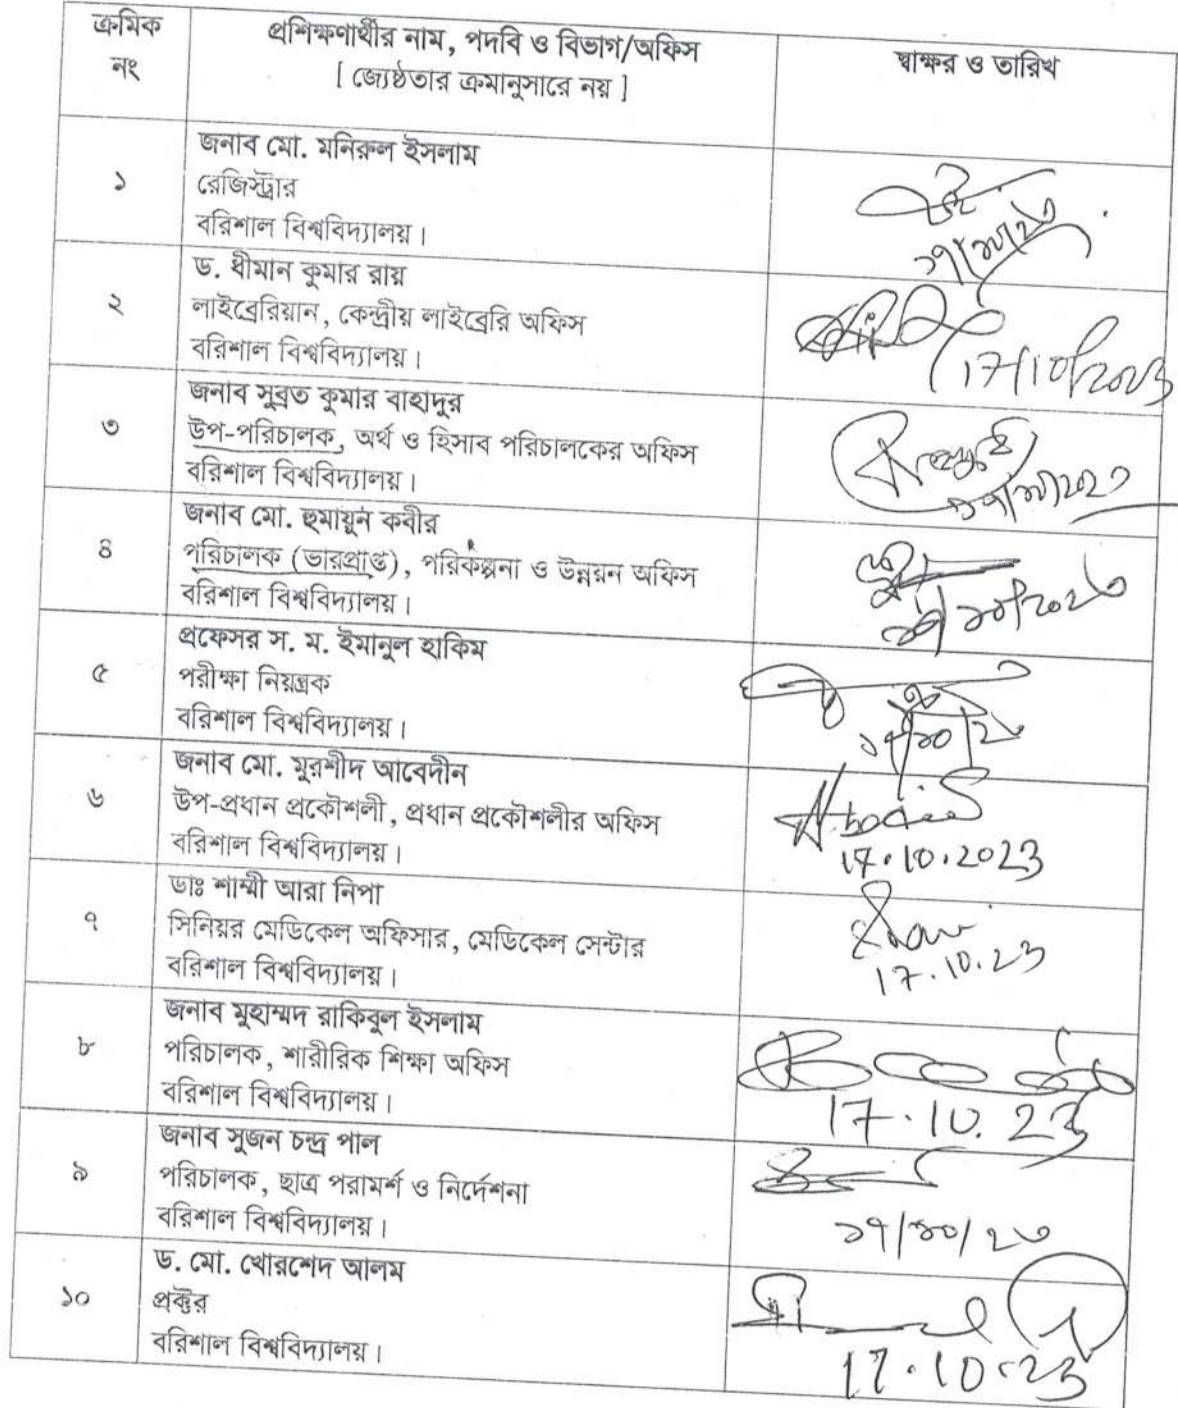 ক্রমিক নং
প্রশিক্ষণার্থীর নাম, পদবি ও বিভাগ/অফিস
[ জ্যেষ্ঠতার ক্রমানুসারে নয় ]
স্বাক্ষর ও তারিখ
১
জনাব মো. মনিরুল ইসলাম
রেজিস্ট্রার
বরিশাল বিশ্ববিদ্যালয়।
১৭/১০/২৩
২
ড. ধীমান কুমার রায়
লাইব্রেরিয়ান, কেন্দ্রীয় লাইব্রেরি অফিস
বরিশাল বিশ্ববিদ্যালয়।
17/10/2023
৩
জনাব সুব্রত কুমার বাহাদুর
উপ-পরিচালক, অর্থ ও হিসাব পরিচালকের অফিস
বরিশাল বিশ্ববিদ্যালয়।
১৭/১০/২০২৩
৪
জনাব মো. হুমায়ুন কবীর
পরিচালক (ভারপ্রাপ্ত), পরিকল্পনা ও উন্নয়ন অফিস
বরিশাল বিশ্ববিদ্যালয়।
১৭/১০/২০২৩
৫
প্রফেসর স. ম. ইমানুল হাকিম
পরীক্ষা নিয়ন্ত্রক
বরিশাল বিশ্ববিদ্যালয়।
১৭/১০/২৩
৬
জনাব মো. মুরশীদ আবেদীন
উপ-প্রধান প্রকৌশলী, প্রধান প্রকৌশলীর অফিস
বরিশাল বিশ্ববিদ্যালয়।
17.10.2023
৭
ডাঃ শাম্মী আরা নিপা
সিনিয়র মেডিকেল অফিসার, মেডিকেল সেন্টার
বরিশাল বিশ্ববিদ্যালয়।
17.10.23
৮
জনাব মুহাম্মদ রাকিবুল ইসলাম
পরিচালক, শারীরিক শিক্ষা অফিস
বরিশাল বিশ্ববিদ্যালয়।
17.10.23
৯
জনাব সুজন চন্দ্র পাল
পরিচালক, ছাত্র পরামর্শ ও নির্দেশনা
বরিশাল বিশ্ববিদ্যালয়।
১৭/১০/২৩
১০
ড. মো. খোরশেদ আলম
প্রক্টর
বরিশাল বিশ্ববিদ্যালয়।
17.10.23